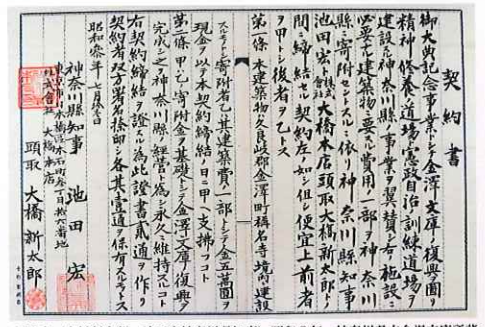 契約書
御大典記念事業トシテ金澤文庫ノ復興ヲ圖リ
精神修養道場、憲政自治訓練道場ヲ
建設ル神奈川縣ノ事業ヲ翼賛シ右施設
必要ナル建築物ニ要スル費用ノ一部ヲ神奈川
縣ニ寄附セントスルニ依リ神奈川縣知事
池田宏ト株式會社大橋本店頭取大橋新太郎トノ
間ニ締結セル契約左ノ如シ但シ便宜上前者
ヲ甲トシ後者ヲ乙トス
第一條 本建築物ハ久良岐郡金澤町稱名寺境内ニ建設
スルモノトシ寄附者ハ其建築費ノ一部トシテ金五萬圓ヲ
現金ヲ以テ本契約締結ノ日ニ甲ニ支拂フコト
第二條 甲ハ乙ノ寄附金ヲ基礎トシテ金澤文庫ノ復興ヲ
完成シ之ヲ神奈川縣ノ經營ト為シ永久ニ維持スルコト
右契約締結ヲ證スル為此證書貳通ヲ作リ
契約者双方署名捺印シ各其壹通ヲ保有スルモノトス
昭和 年七月拾 日
神奈川縣知事 池田宏
東京市日本橋區本石町 番地
株式會社大橋本店
頭取 大橋新太郎